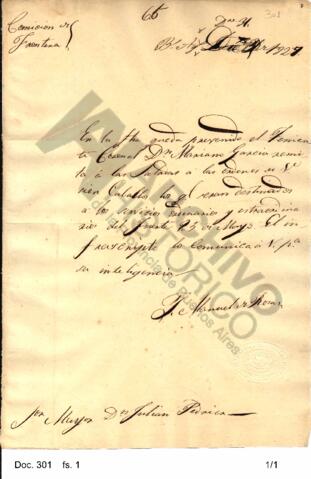 65
301
Comision de
Frontera
Bs. Ays
1827
En la fha queda prevenido el Tenien
te Coronel Dn Mariano Garcia remi
ta a las Pulperias a las ordenes de V.
cien Caballos los q.e seran destinados
a los servicios ordinarios y extraordina
rios del fuerte 25 de Mayo. El in
frascripto lo comunica a V. pa.
su inteligencia
J. Manuel de Rosas
Sor Mayor Dn Julian Perdriel
ARCHIVO
HISTORICO
Provincia de Buenos Aires
Doc. 301 fs. 1
1/1